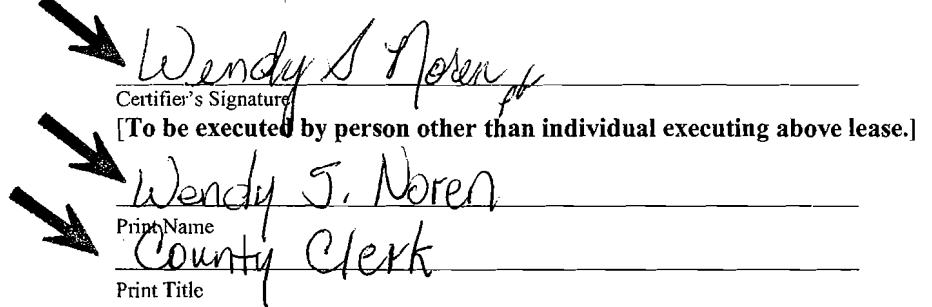 Wendy S Noren
Certifier's Signature
[To be executed by person other than individual executing above lease.]
Wendy S. Noren
Print Name
County Clerk
Print Title